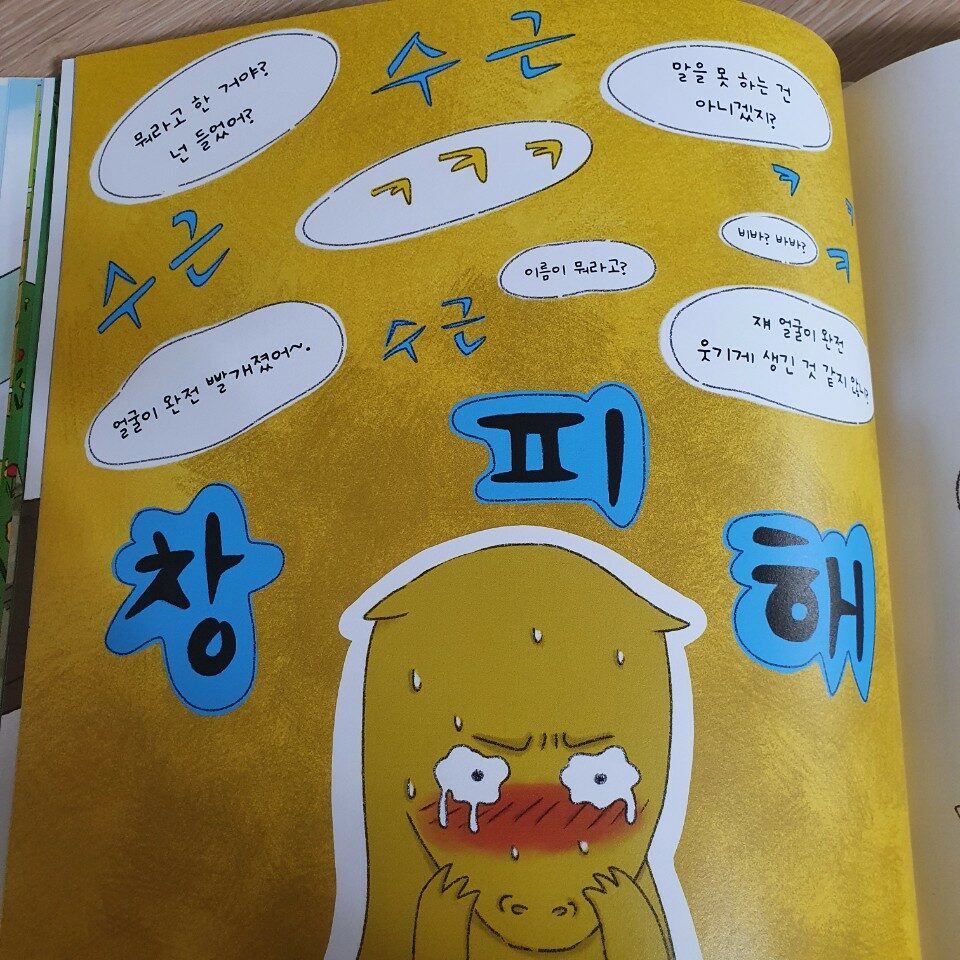 수근
뭐라고 한 거야?
넌 들었어?
말을 못 하는 건
아니겠지?
ㅋ ㅋ ㅋ
ㅋ ㅋ ㅋ
수근
비바? 바바?
이름이 뭐라고?
수근
쟤 얼굴이 완전
웃기게 생긴 것 같지 않니?
얼굴이 완전 빨개졌어~.
창피해